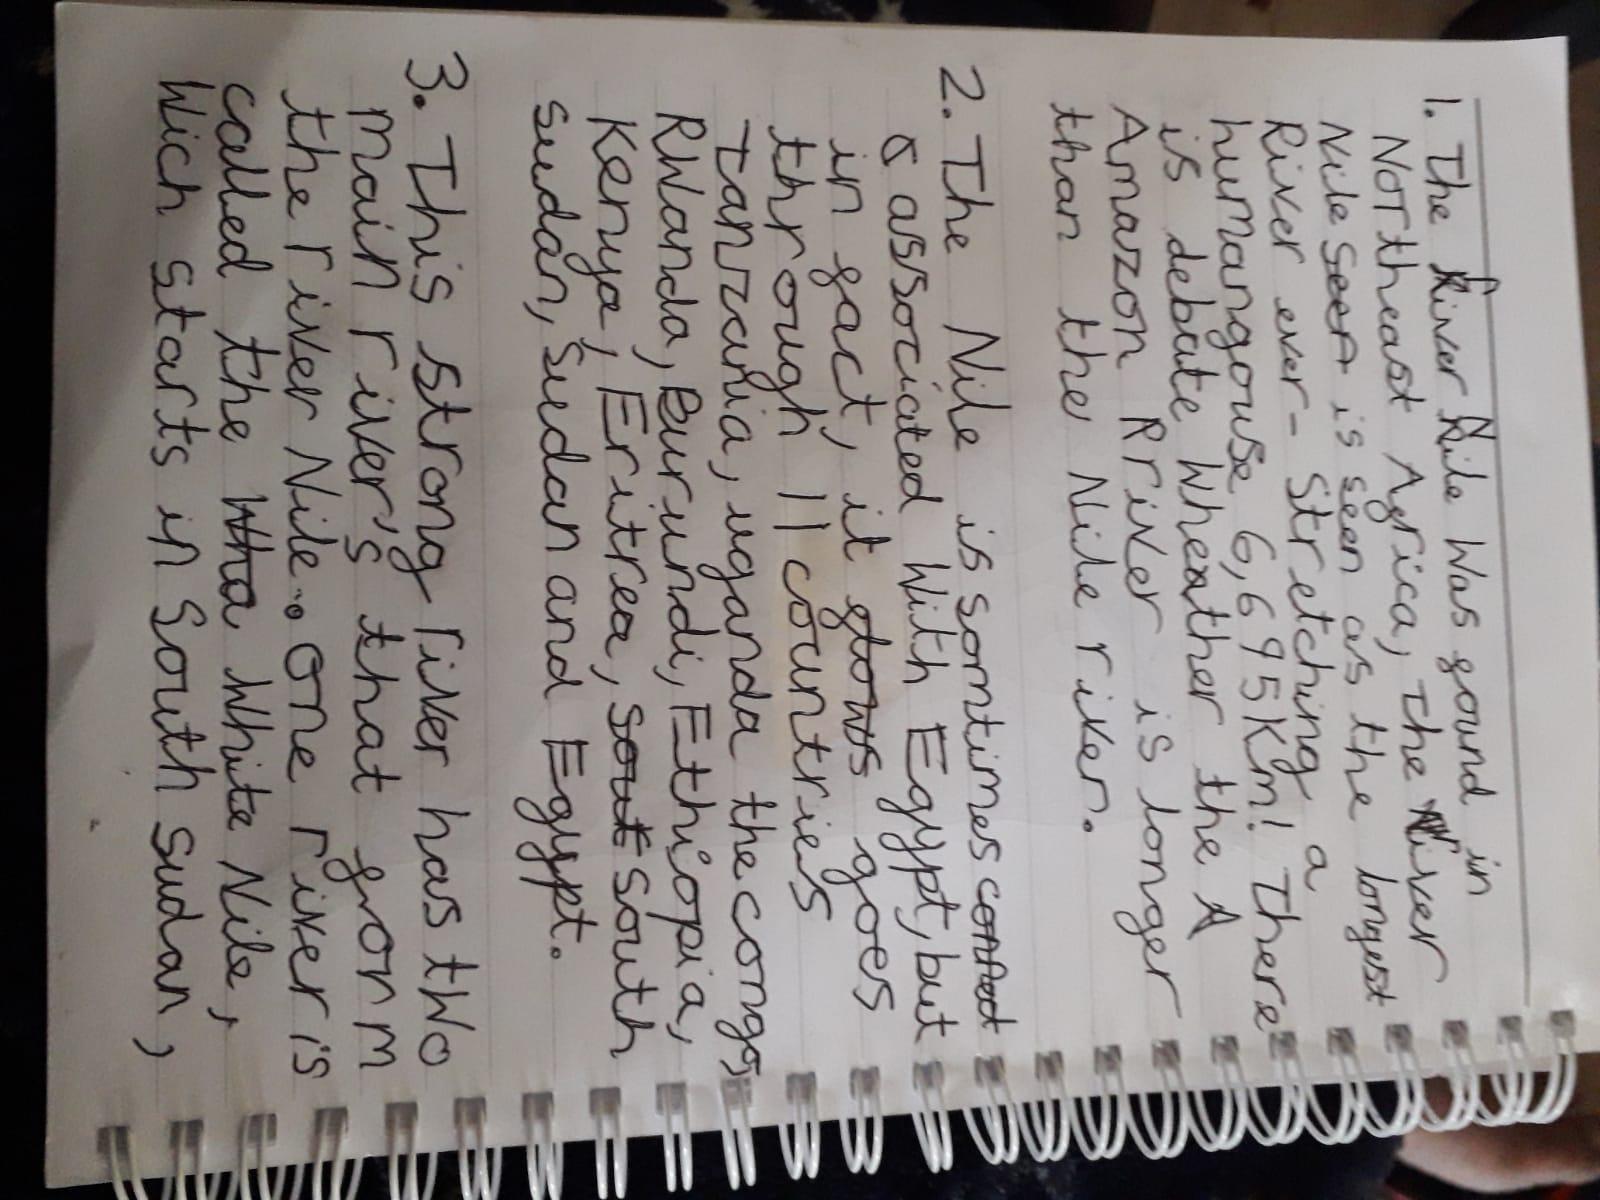 1. The River Nile was found in
Northeast Africa, The River
Nile seen is seen as the longest
River ever- Stretching a
humangouse 6,695km! There
is debate wheather the A
Amazon River is longer
than the Nile river.
2. The Nile is somtimes
& associated with Egypt, but
in fact, it flows goes
through 11 countries
Tanzania, uganda the congo,
RWanda, Burundi, Ethiopia,
Kenya, Eritrea, sout south
sudan, Sudan and Egypt.
3. This strong river has two
main river's that form
the river Nile. One river is
called the Wha White Nile,
Wich starts in South sudan,